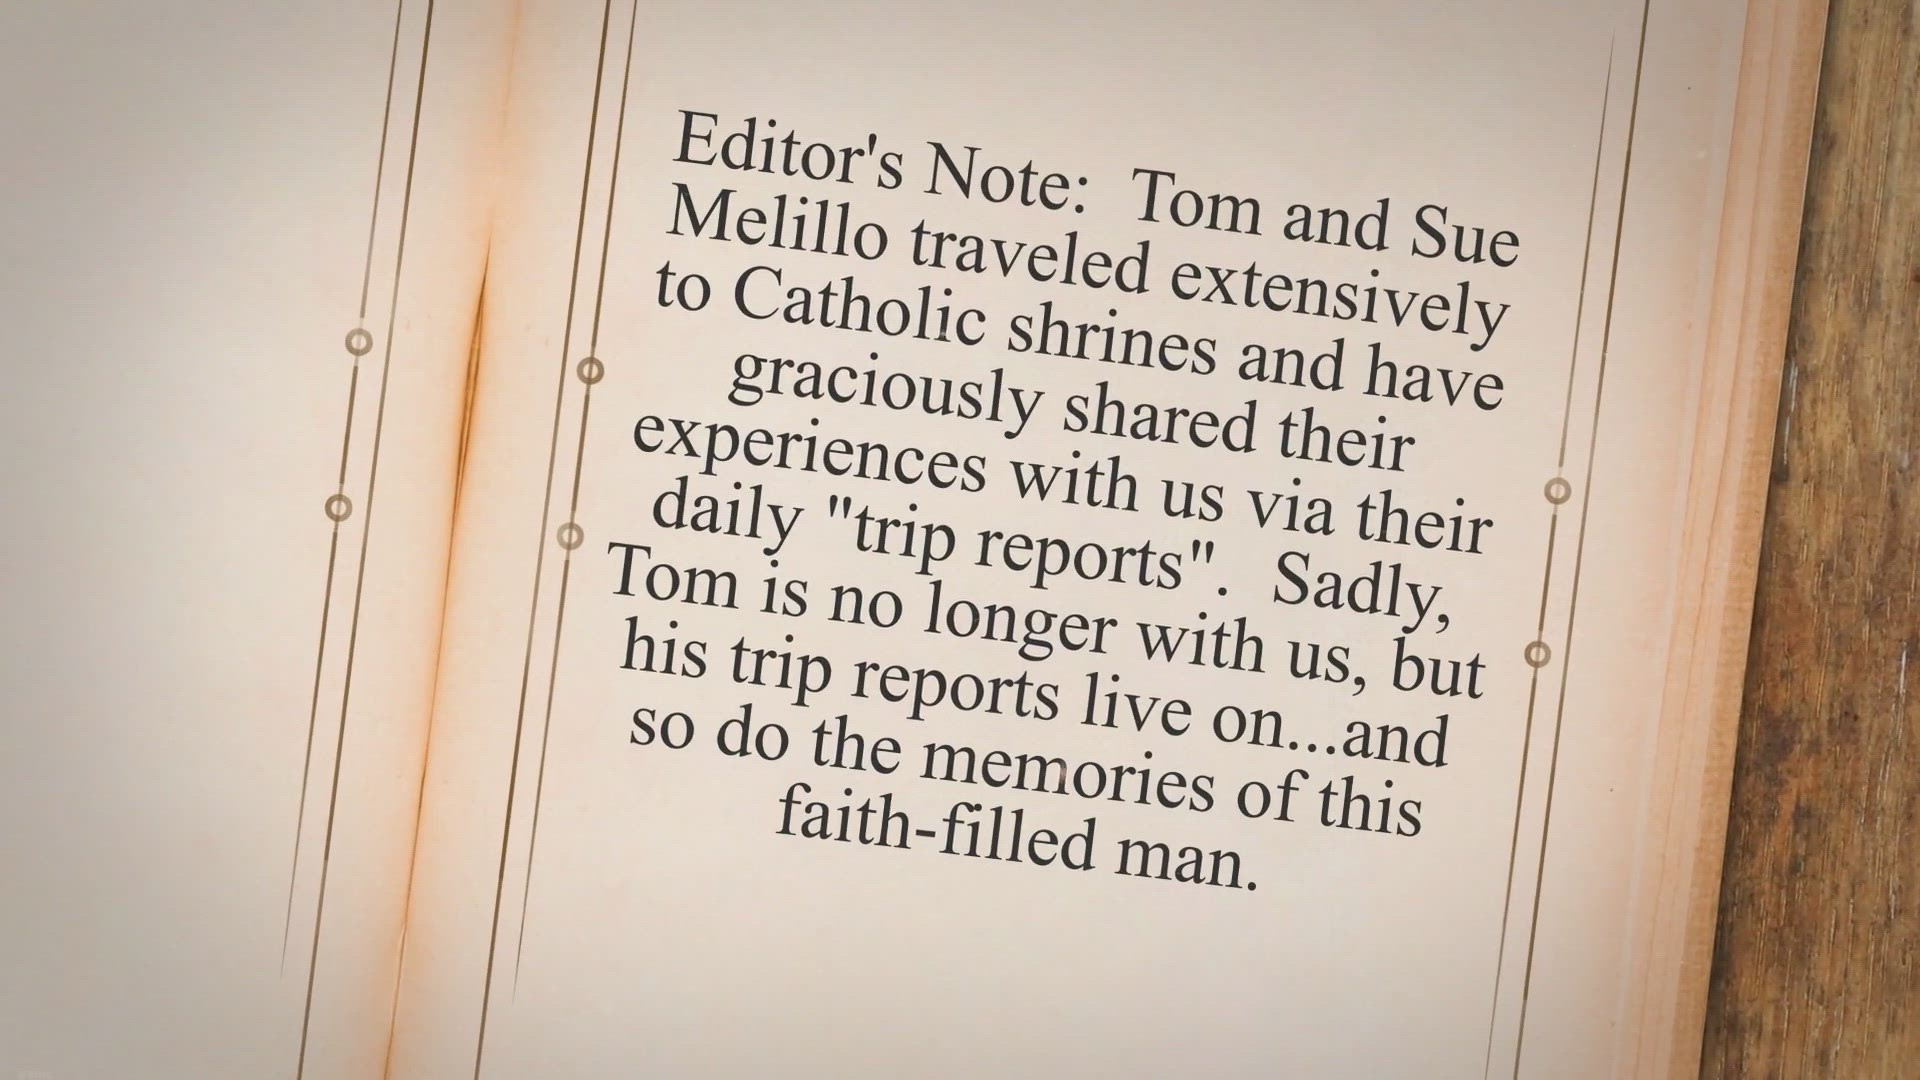 Editor's Note:  Tom and Sue
Melillo traveled extensively
to Catholic shrines and have
graciously shared their
experiences with us via their
daily "trip reports".  Sadly,
Tom is no longer with us, but
his trip reports live on...and
so do the memories of this
faith-filled man.